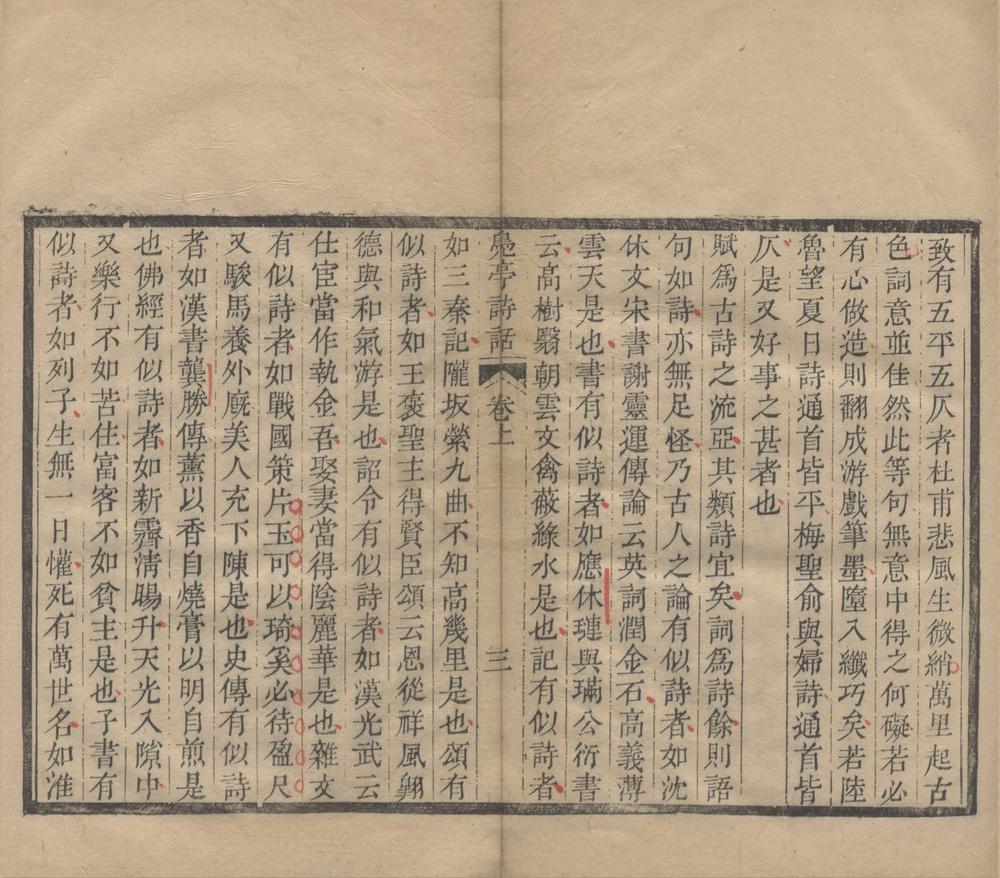 致有五平五仄者杜甫悲風生微綃萬里起古
色詞意並佳然此等句無意中得之何礙若必
有心做造則翻成游戲筆墨墮入纖巧矣若陸
魯望夏日詩通首皆平梅聖俞與婦詩通首皆
仄是又好事之甚者也
賦爲古詩之流亞其類詩宜矣詞爲詩餘則語
句如詩亦無足怪乃古人之論有似詩者如沈
休文宋書謝靈運傳論云英詞潤金石高義薄
雲天是也書有似詩者如應休璉與滿公衍書
云高樹翳朝雲文禽蔽綠水是也記有似詩者
鳧亭詩話 卷上 三
如三秦記隴坂縈九曲不知高幾里是也頌有
似詩者如王褒聖主得賢臣頌云恩從祥風翶
德與和氣游是也詔令有似詩者如漢光武云
仕宦當作執金吾娶妻當得陰麗華是也雜文
有似詩者如戰國策片玉可以琦奚必待盈尺
又駿馬養外廐美人充下陳是也史傳有似詩
者如漢書龔勝傳薰以香自燒膏以明自煎是
也佛經有似詩者如新霽淸暘升天光入隙中
又樂行不如苦住富客不如貧主是也子書有
似詩者如列子生無一日懽死有萬世名如淮